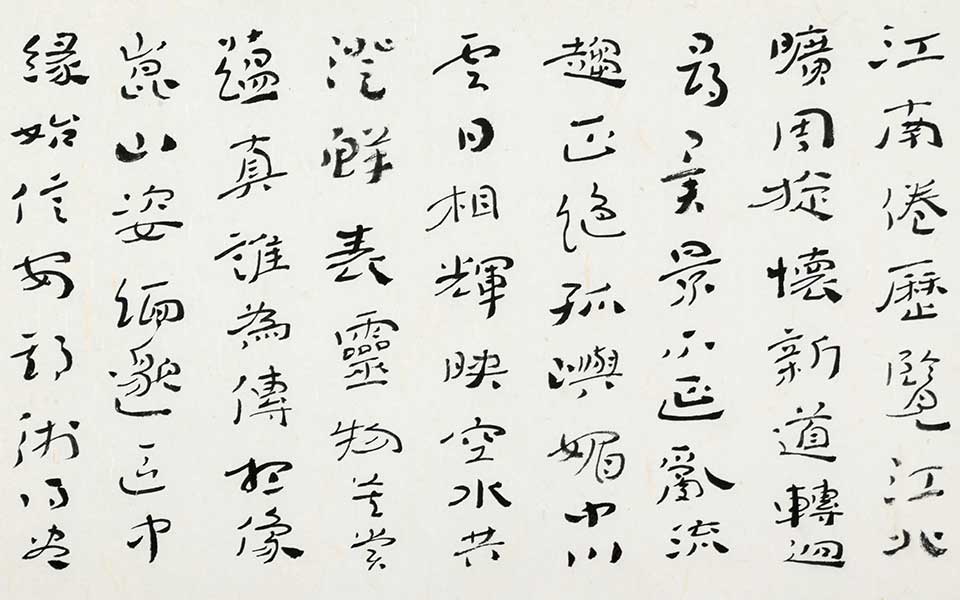 江南倦歷覽江北
曠周旋懷新道轉迥
尋異景不延亂流
趨正絕孤嶼媚中川
云日相輝映空水共
澄鮮表靈物莫賞
蘊真誰為傳想像
崑山姿緬邈區中
緣始信安期術得盡